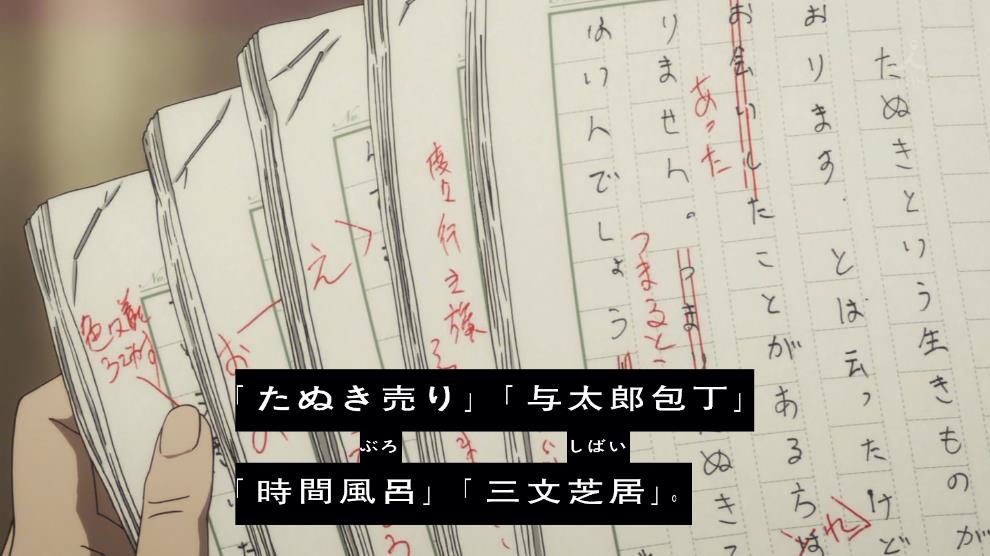 が
たぬきという生きものが
おります．とは云ったけど
お会いしたことがある
あった
りません。つまり
つまると
ぬき
いんでしょう
え
お
「たぬき売り」「与太郎包丁」
ぶろ　しばい
「時間風呂」「三文芝居」。